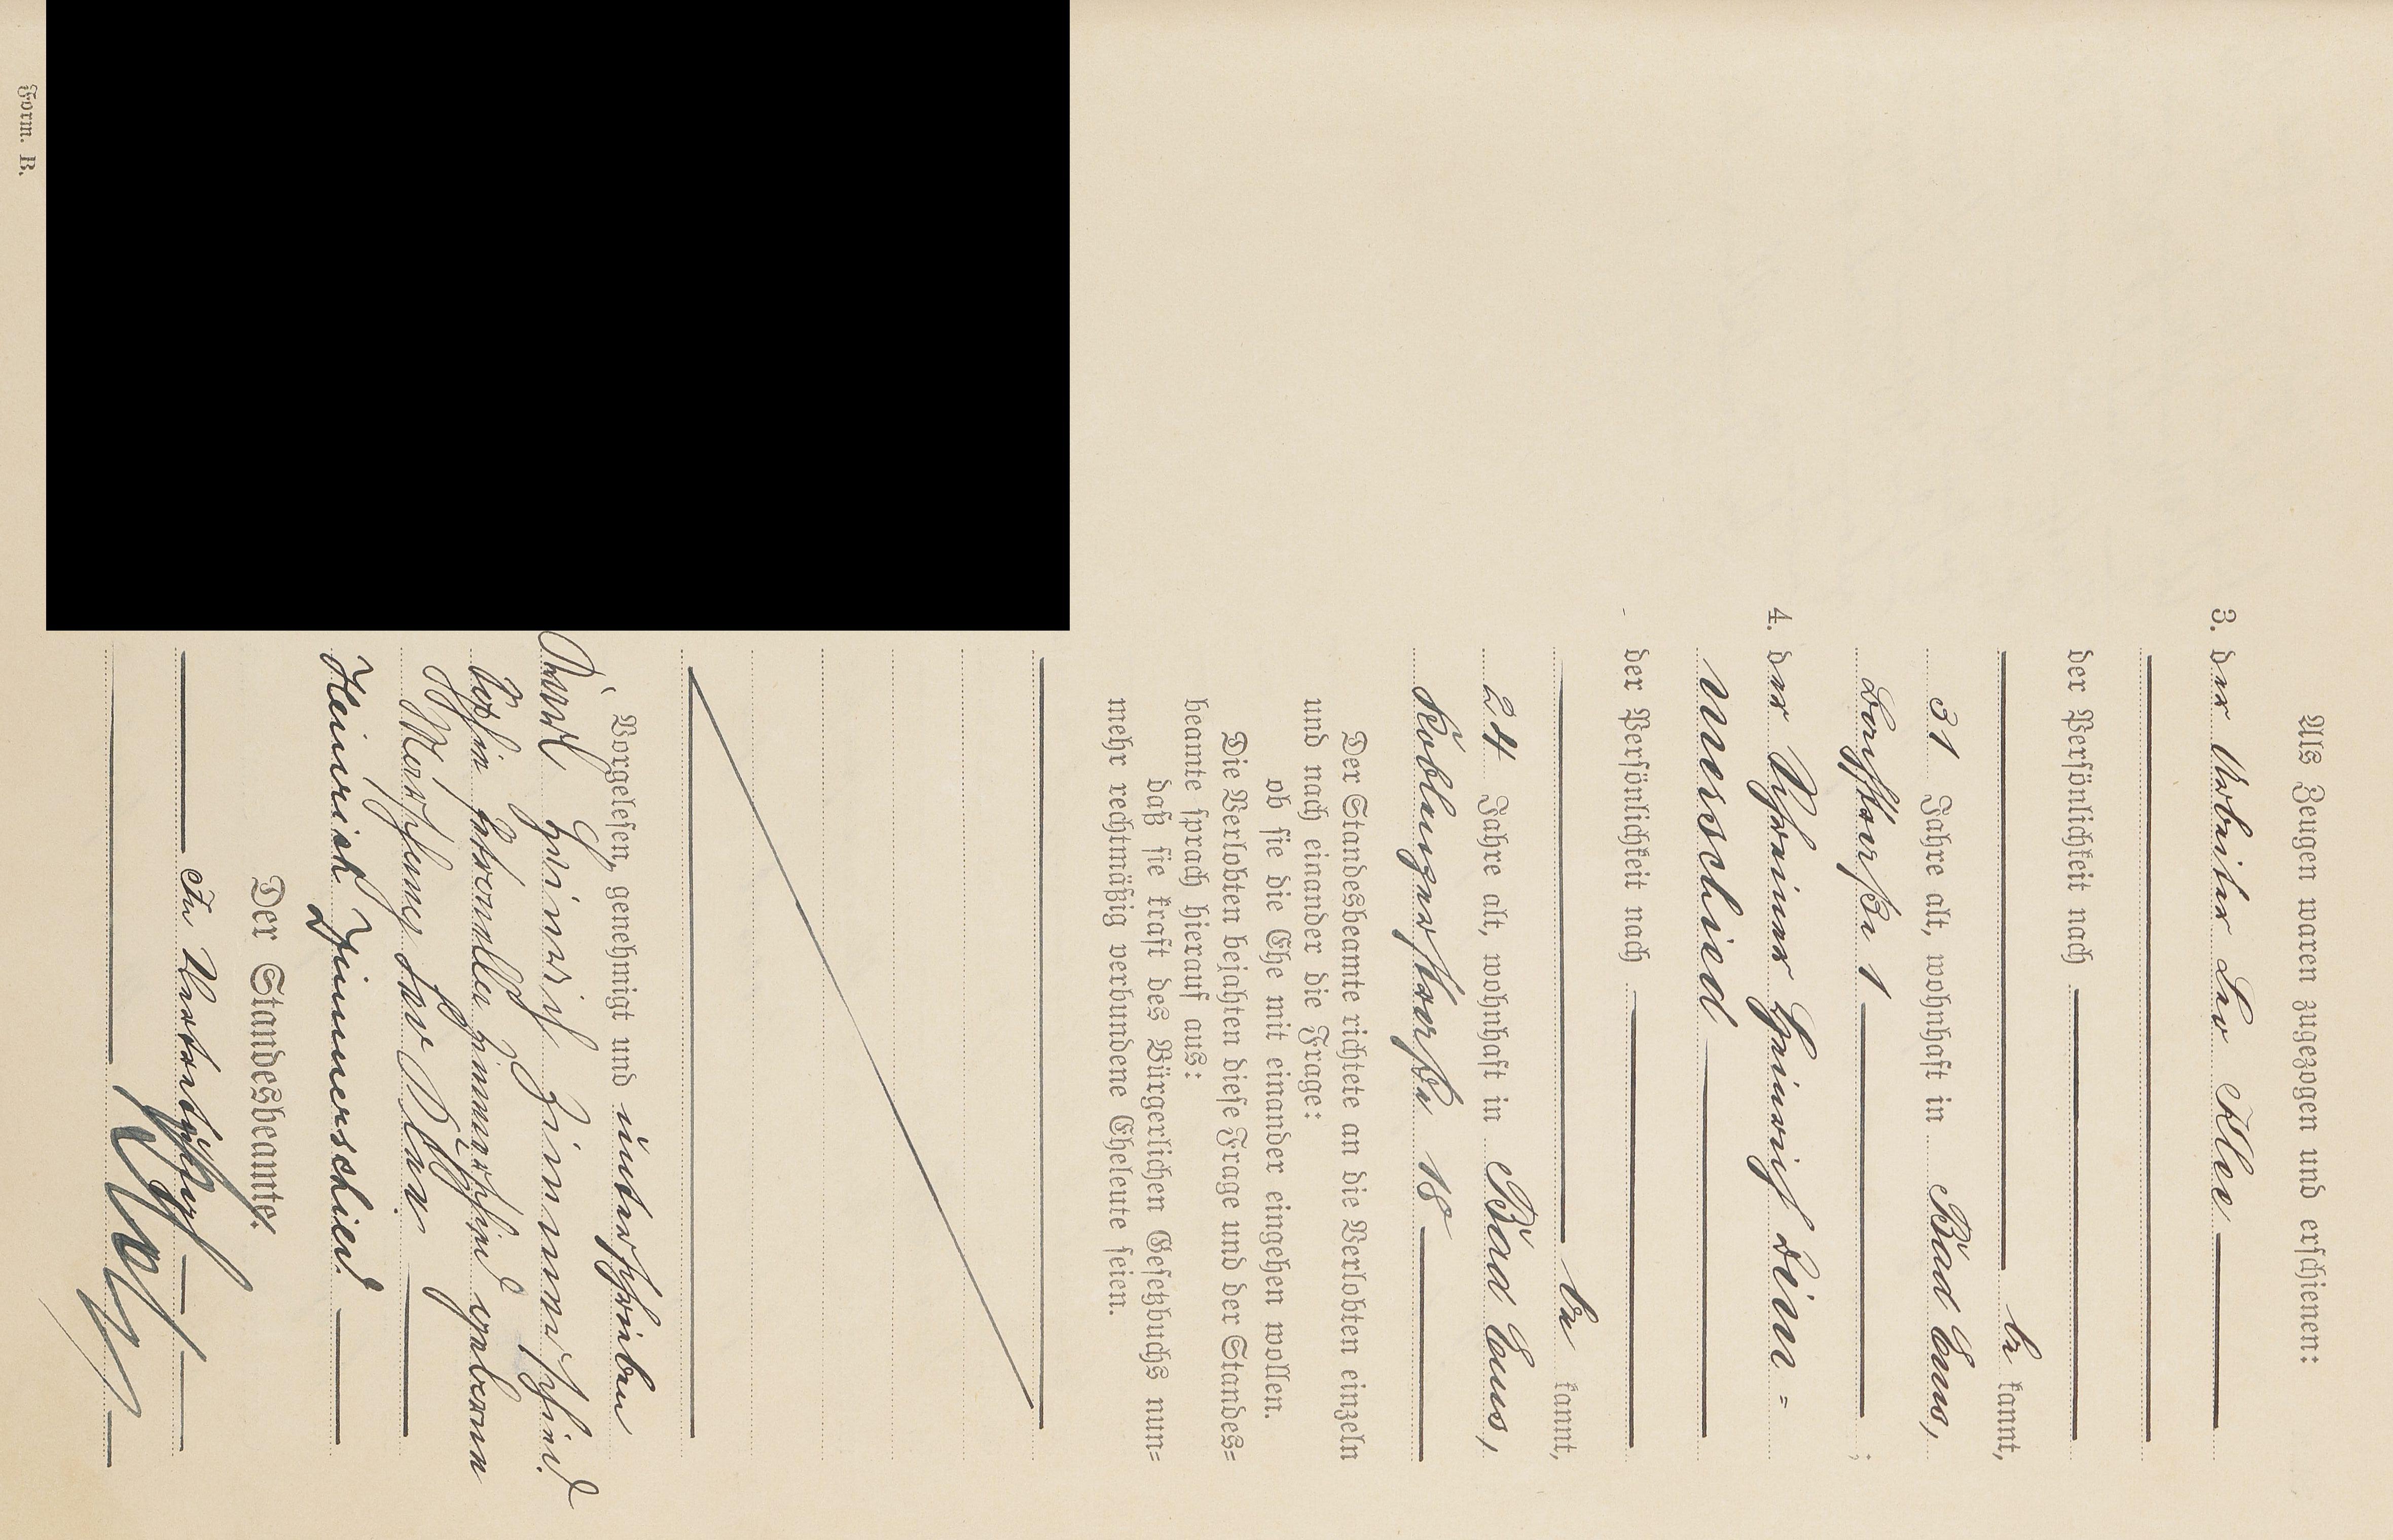 Als Zeugen waren zugezogen und erschienen:
3. der Arbeiter Leo Klee
der Persönlichkeit nach
be kannt,
31 Jahre alt, wohnhaft in Bad Ems,
straße 1 ;
4. der Schreiner Heinrich Zim=
merschied
der Persönlichkeit nach
be kannt,
24 Jahre alt, wohnhaft in Bad Ems,
Koblenzerstraße 18
Der Standesbeamte richtete an die Verlobten einzeln
und nach einander die Frage:
ob sie die Ehe mit einander eingehen wollen.
Die Verlobten bejahten diese Frage und der Standes=
beamte sprach hierauf aus:
daß sie kraft des Bürgerlichen Gesetzbuchs nun=
mehr rechtmäßig verbundene Eheleute seien.
Vorgelesen, genehmigt und unterschrieben
Karl Heinrich Zimmerschied.
Zimmerschied geborene
Leo Klee.
Heinrich Zimmerschied.
Der Standesbeamte.
In Vertretung
Form. B.